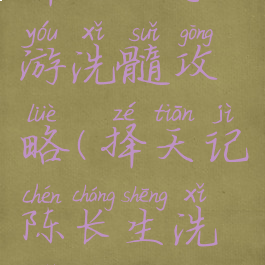 yóu xǐ suǐ gōng
游洗髓攻
lüè zé tiān jì
略(择天记
chén cháng shēng xǐ
陈长生洗